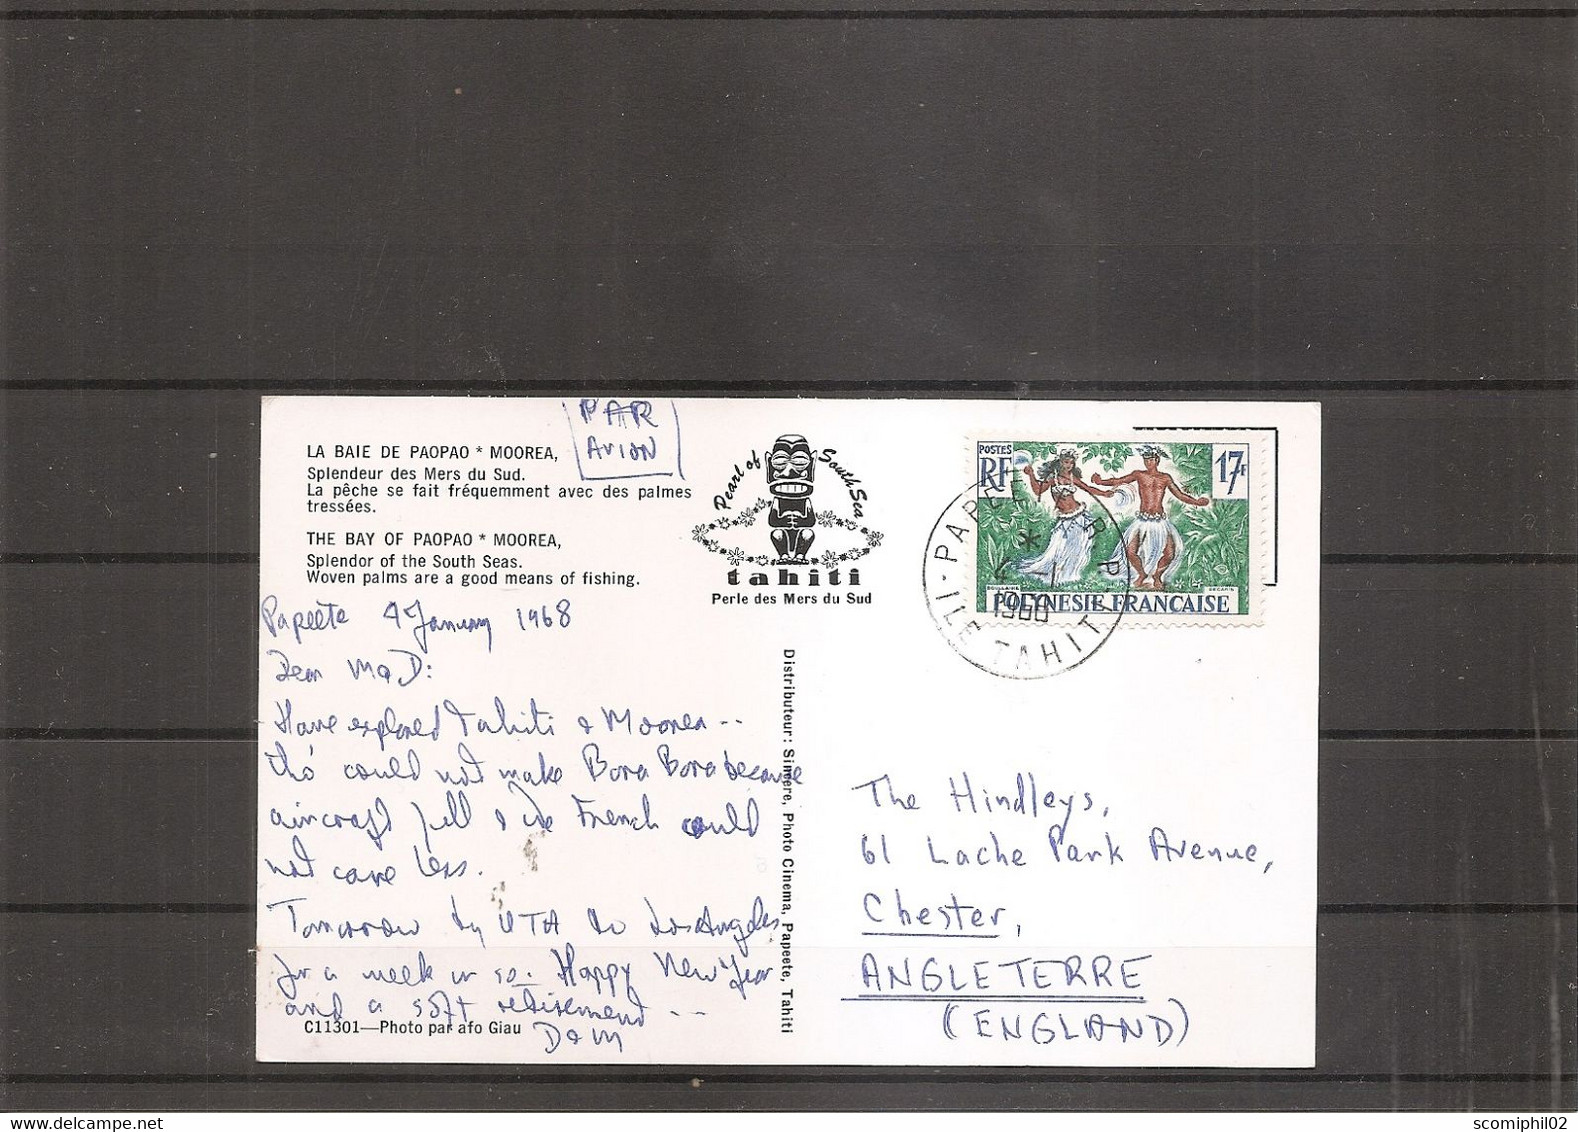 LA BAIE DE PAOPAO * MOOREA,
Splendeur des Mers du Sud.
La pêche se fait fréquemment avec des palmes
tressées.
THE BAY OF PAOPAO * MOOREA,
Splendor of the South Seas.
Woven palms are a good means of fishing.
PAR
AVION
Pearl of South Sea
tahiti
Perle des Mers du Sud
POSTES
RF
17F
POLYNESIE FRANÇAISE
PAPEETE R.P.
*
4 - 1
ILE TAHITI
Papeete 4 January 1968
Dear M & D:
Have explored Tahiti & Moorea --
tho' could not make Bora Bora because
aircraft full & the French could
not care less.
Tomorrow by UTA to Los Angeles
for a week or so. Happy New Year
and a soft retirement --
D & M
C11301—Photo par afo Giau
Distributeur: Sincère, Photo Cinema, Papeete, Tahiti
The Hindleys,
61 Lache Park Avenue,
Chester,
ANGLETERRE
(ENGLAND)
scomiphil02